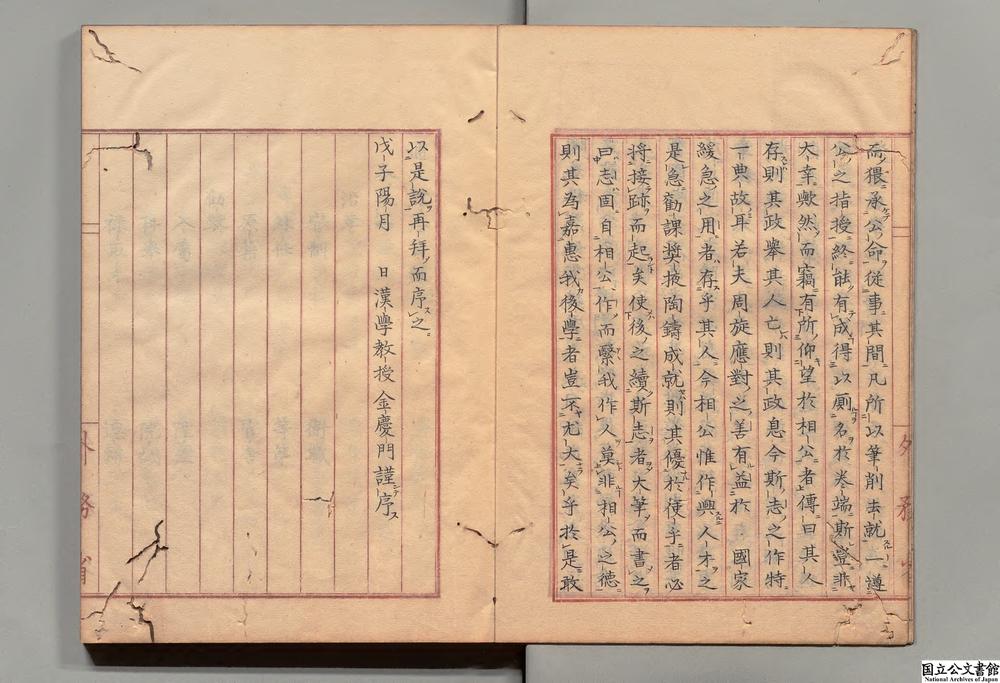 而猥承公命從事其間凡所以筆削去就一遵
公之指授終能有成得以厠名於卷端斯豈非
大幸歟然而竊有所仰望於相公者傳曰其人
存則其政舉其人亡則其政息今斯志之作特
一典故耳若夫周旋應對之善有益於 國家
緩急之用者存乎其人今相公惟作興人才之
是急勸課奬掖陶鑄成就則其優於使乎者必
將接跡而起矣使後之續斯志者大筆而書之
曰志固自相公作而繄我作人莫非相公之德
則其為嘉惠我後學者豈不尤大矣乎於是敢
以是說再拜而序之
戊子陽月 日漢學教授金慶門謹序
外務省
国立公文書館
National Archives of Japan